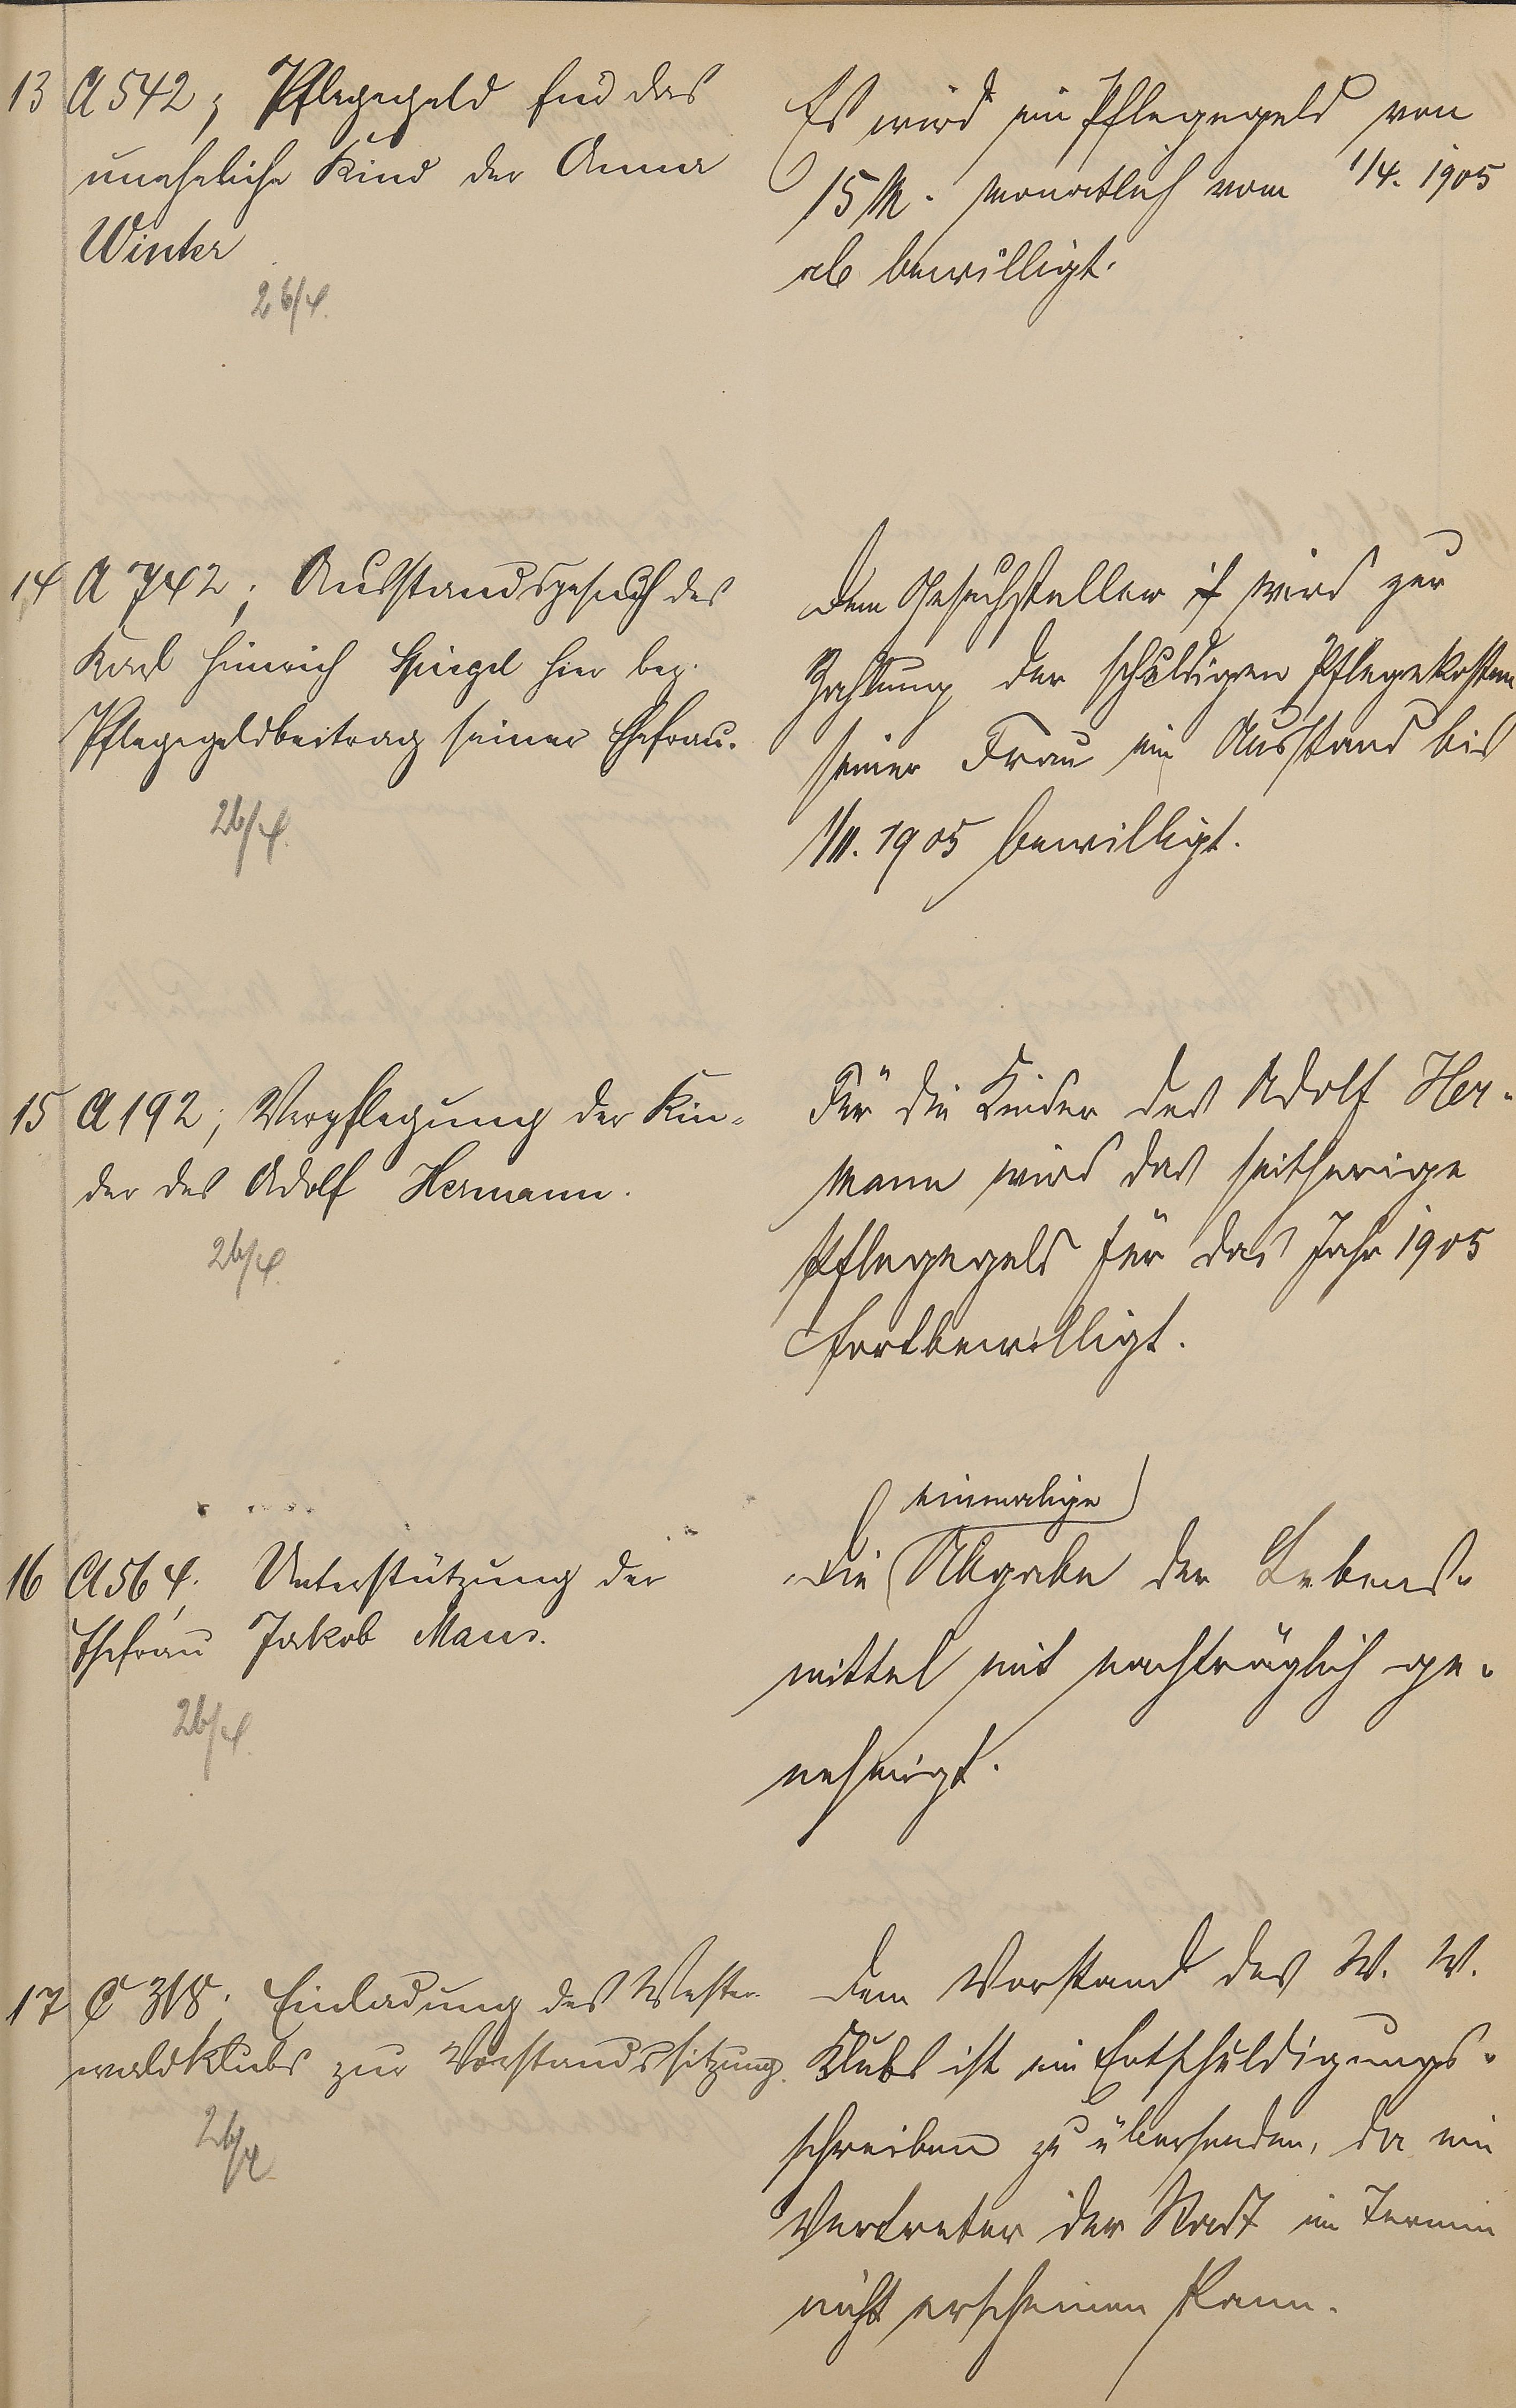 13 A 542; Pflegegeld für das
uneheliche Kind der Anna
Winter
26/4.
Es wird ein Pflegegeld von
15 M. monatlich vom 1/4. 1905
ab bewilligt.
14 A 742; Ausstandsgesuch des
Karl Heinrich Spiegel hier bez.
Pflegegeldbeitrag seiner Ehefrau.
26/4.
Dem Gesuchsteller wird zur
Zahlung der schuldigen Pflegekosten
seiner Frau ein Ausstand bis
1/11. 1905 bewilligt.
15 A 192; Verpflegung der Kin-
der des Adolf Hermann.
26/4.
Für die Kinder des Adolf Her-
mann wird das seitherige
Pflegegeld für das Jahr 1905
fortbewilligt.
16 A 564; Unterstützung der
Ehefrau Jakob Maus.
26/4.
einmalige
Die Abgabe der Lebens-
mittel wird nachträglich ge-
nehmigt.
17 C 318. Einladung des Wester-
waldklubs zur Vorstandssitzung.
26/4.
Dem Vorstand des W. W.
Klubs ist ein Entschuldigungs-
schreiben zu übersenden, da ein
Vertreter der Stadt im Termin
nicht erscheinen kann.